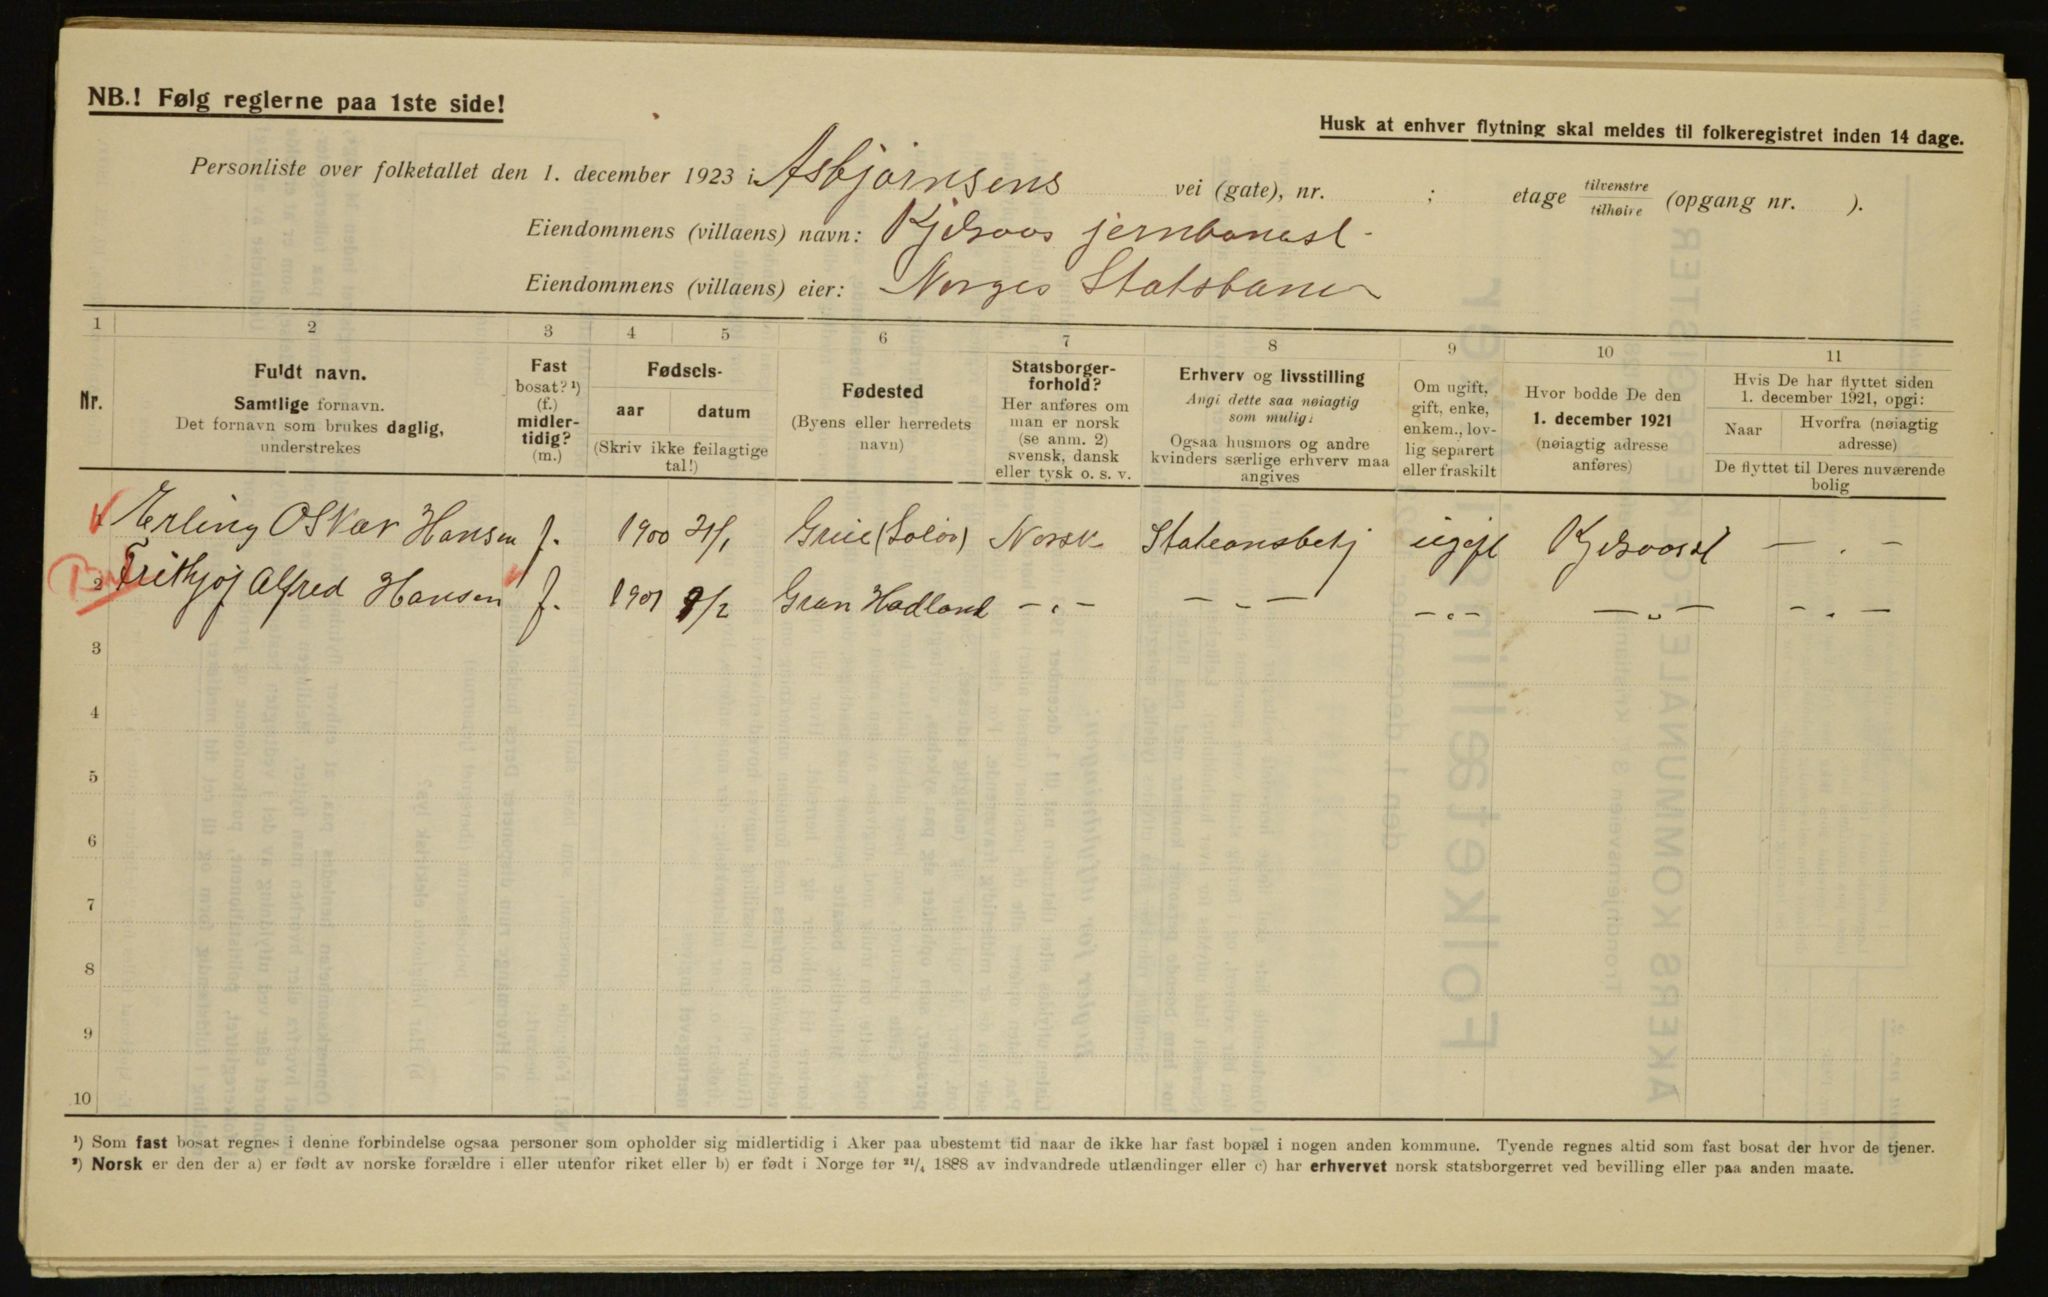 NB.! Følg reglerne paa 1ste side!
Husk at enhver flytning skal meldes til folkeregistret inden 14 dage.
Personliste over folketallet den 1. december 1923 i Asbjørnsens vei (gate), nr. ; etage tilvenstre/tilhøire (opgang nr. ).
Eiendommens (villaens) navn: Kjelsaas jernbanest.
Eiendommens (villaens) eier: Norges Statsbaner
1 2 3 4 5 6 7 8 9 10 11
Nr.
Fuldt navn.
Samtlige fornavn.
Det fornavn som brukes daglig,
understrekes
Fast
bosat? ¹)
(f.)
midler-
tidig?
(m.)
Fødsels-
aar datum
(Skriv ikke feilagtige
tal!)
Fødested
(Byens eller herredets
navn)
Statsborger-
forhold?
Her anføres om
man er norsk
(se anm. 2)
svensk, dansk
eller tysk o. s. v.
Erhverv og livsstilling
Angi dette saa nøiagtig
som mulig!
Ogsaa husmors og andre
kvinders særlige erhverv maa
angives
Om ugift,
gift, enke,
enkem., lov-
lig separert
eller fraskilt
Hvor bodde De den
1. december 1921
(nøiagtig adresse
anføres)
Hvis De har flyttet siden
1. december 1921, opgi:
Naar Hvorfra (nøiagtig
adresse)
De flyttet til Deres nuværende
bolig
Erling Oskar Hansen f. 1900 21/1 Grue (Solør) Norsk Stationsbetj ugift Kjelsaas st — „ —
2 Frithjof Alfred Hansen f. 1901 9/2 Gran Hadland — „ — — „ — — „ — — „ — — „ —
3
4
5
6
7
8
9
10
¹) Som fast bosat regnes i denne forbindelse ogsaa personer som opholder sig midlertidig i Aker paa ubestemt tid naar de ikke har fast bopæl i nogen anden kommune. Tyende regnes altid som fast bosat der hvor de tjener.
²) Norsk er den der a) er født av norske forældre i eller utenfor riket eller b) er født i Norge før 21/4 1888 av indvandrede utlændinger eller c) har erhvervet norsk statsborgerret ved bevilling eller paa anden maate.